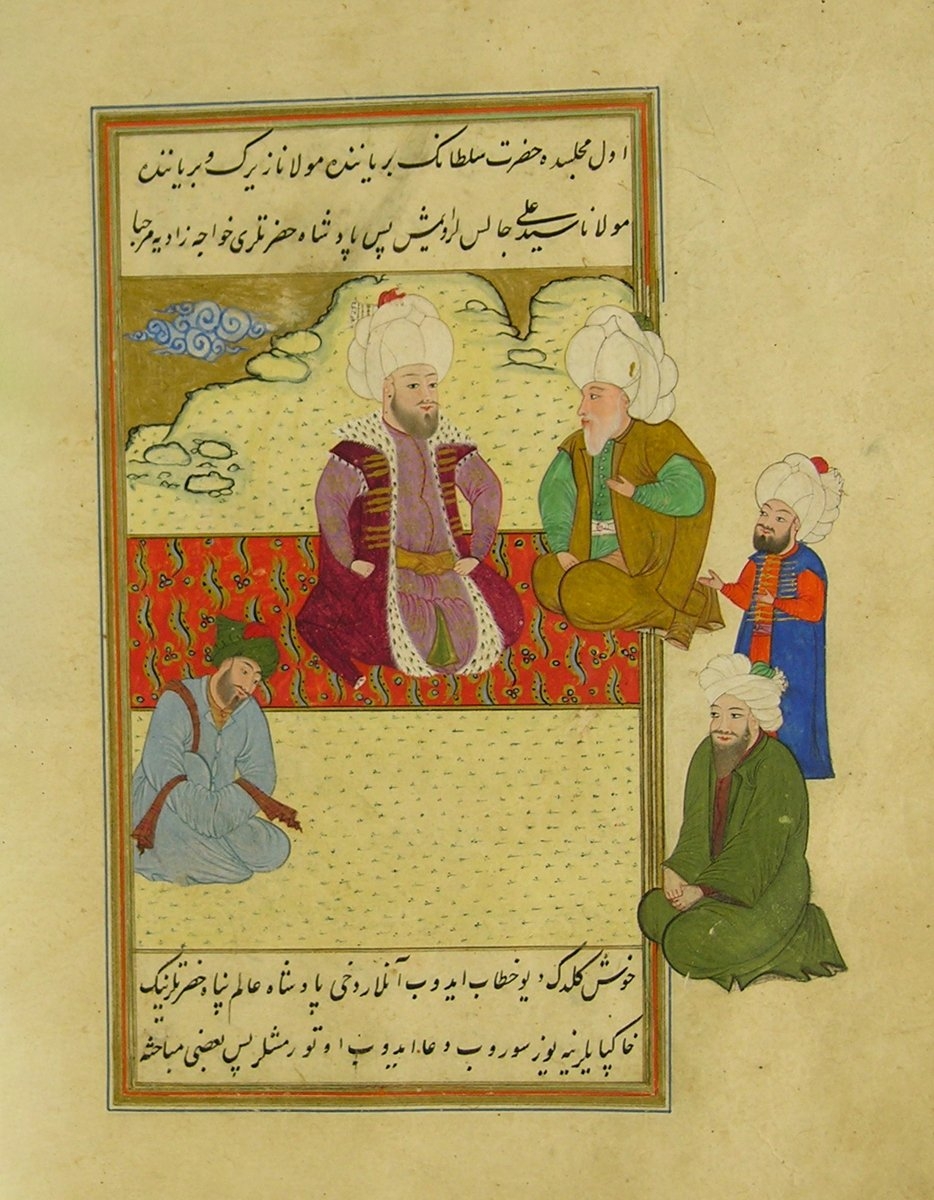 اول مجلسده حضرت سلطانك بر یاننده مولانا زیرك و بر یاننده
مولانا سید علی جالس لرایمش پس پادشاه حضرتلری خواجه زادیه مرحبا
خوش كلدك دیو خطاب ایدوب آنلار دخی پادشاه عالم پناه حضرتلرینك
خاكپایلرینه یوز سوروب دعا ایدوب اوتورمشلر پس بعضی مباحثه